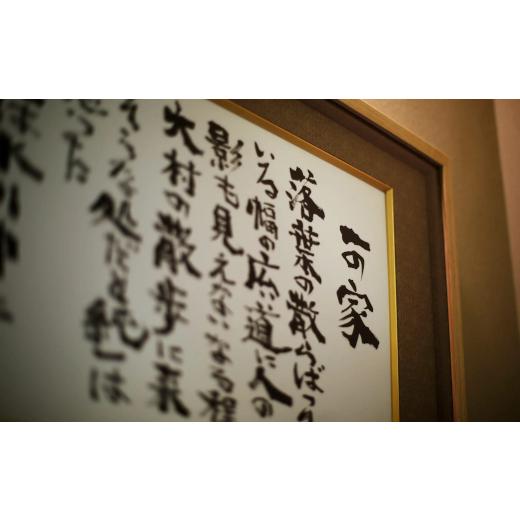 一の家
落葉の散らばつ
いる幅の広い道に人の
影も見えないなる程
大村の散歩に来
そうな処だと私は
思った